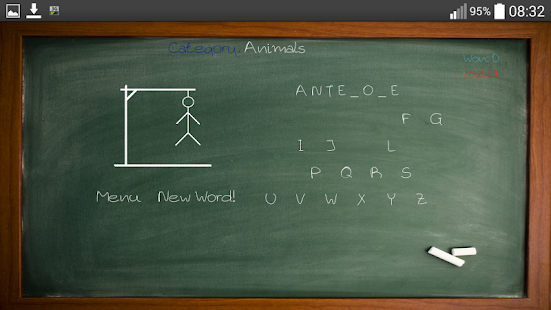 95% 08:32
Category: Animals
ANTE_O_E
F G
I J L
P Q R S
Menu New Word! U V W X Y Z